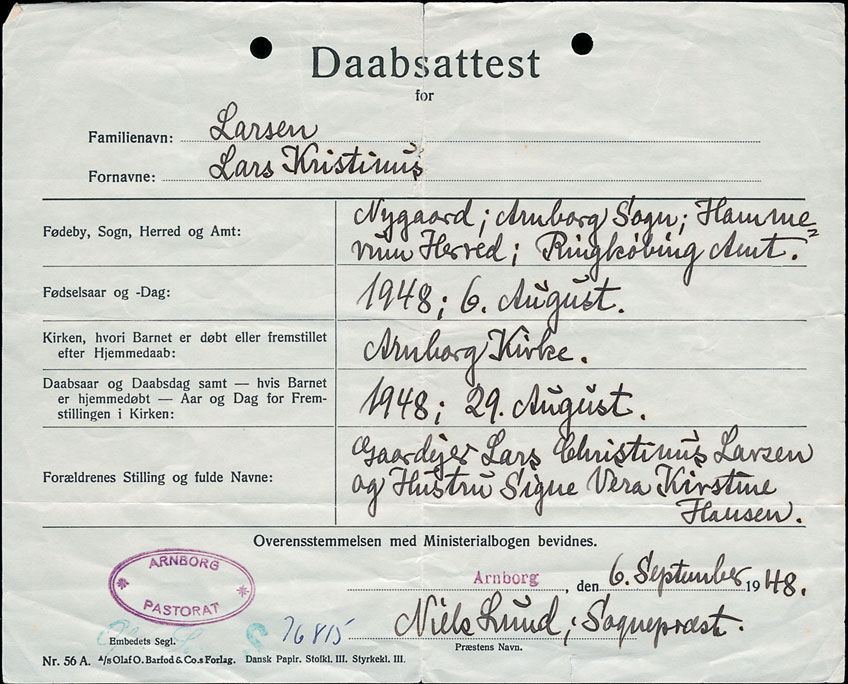 Daabsattest
for
Familienavn: Larsen
Fornavne: Lars Kristinus
Fødeby, Sogn, Herred og Amt: Nygaard; Arnborg Sogn; Hamme=
rum Herred; Ringkøbing Amt.
Fødselsaar og -Dag: 1948; 6. August.
Kirken, hvori Barnet er døbt eller fremstillet
efter Hjemmedaab: Arnborg Kirke.
Daabsaar og Daabsdag samt — hvis Barnet
er hjemmedøbt — Aar og Dag for Frem-
stillingen i Kirken: 1948; 29. August.
Forældrenes Stilling og fulde Navne: Gaardejer Lars Christinus Larsen
og Hustru Signe Vera Kirstine
Hansen.
Overensstemmelsen med Ministerialbogen bevidnes.
ARNBORG
PASTORAT
Arnborg, den 6. September 1948.
Niels Lund; Sognepræst.
Embedets Segl. S 76815 Præstens Navn.
Nr. 56 A. A/s Olaf O. Barfod & Co.s Forlag. Dansk Papir. Stofkl. III. Styrkekl. III.